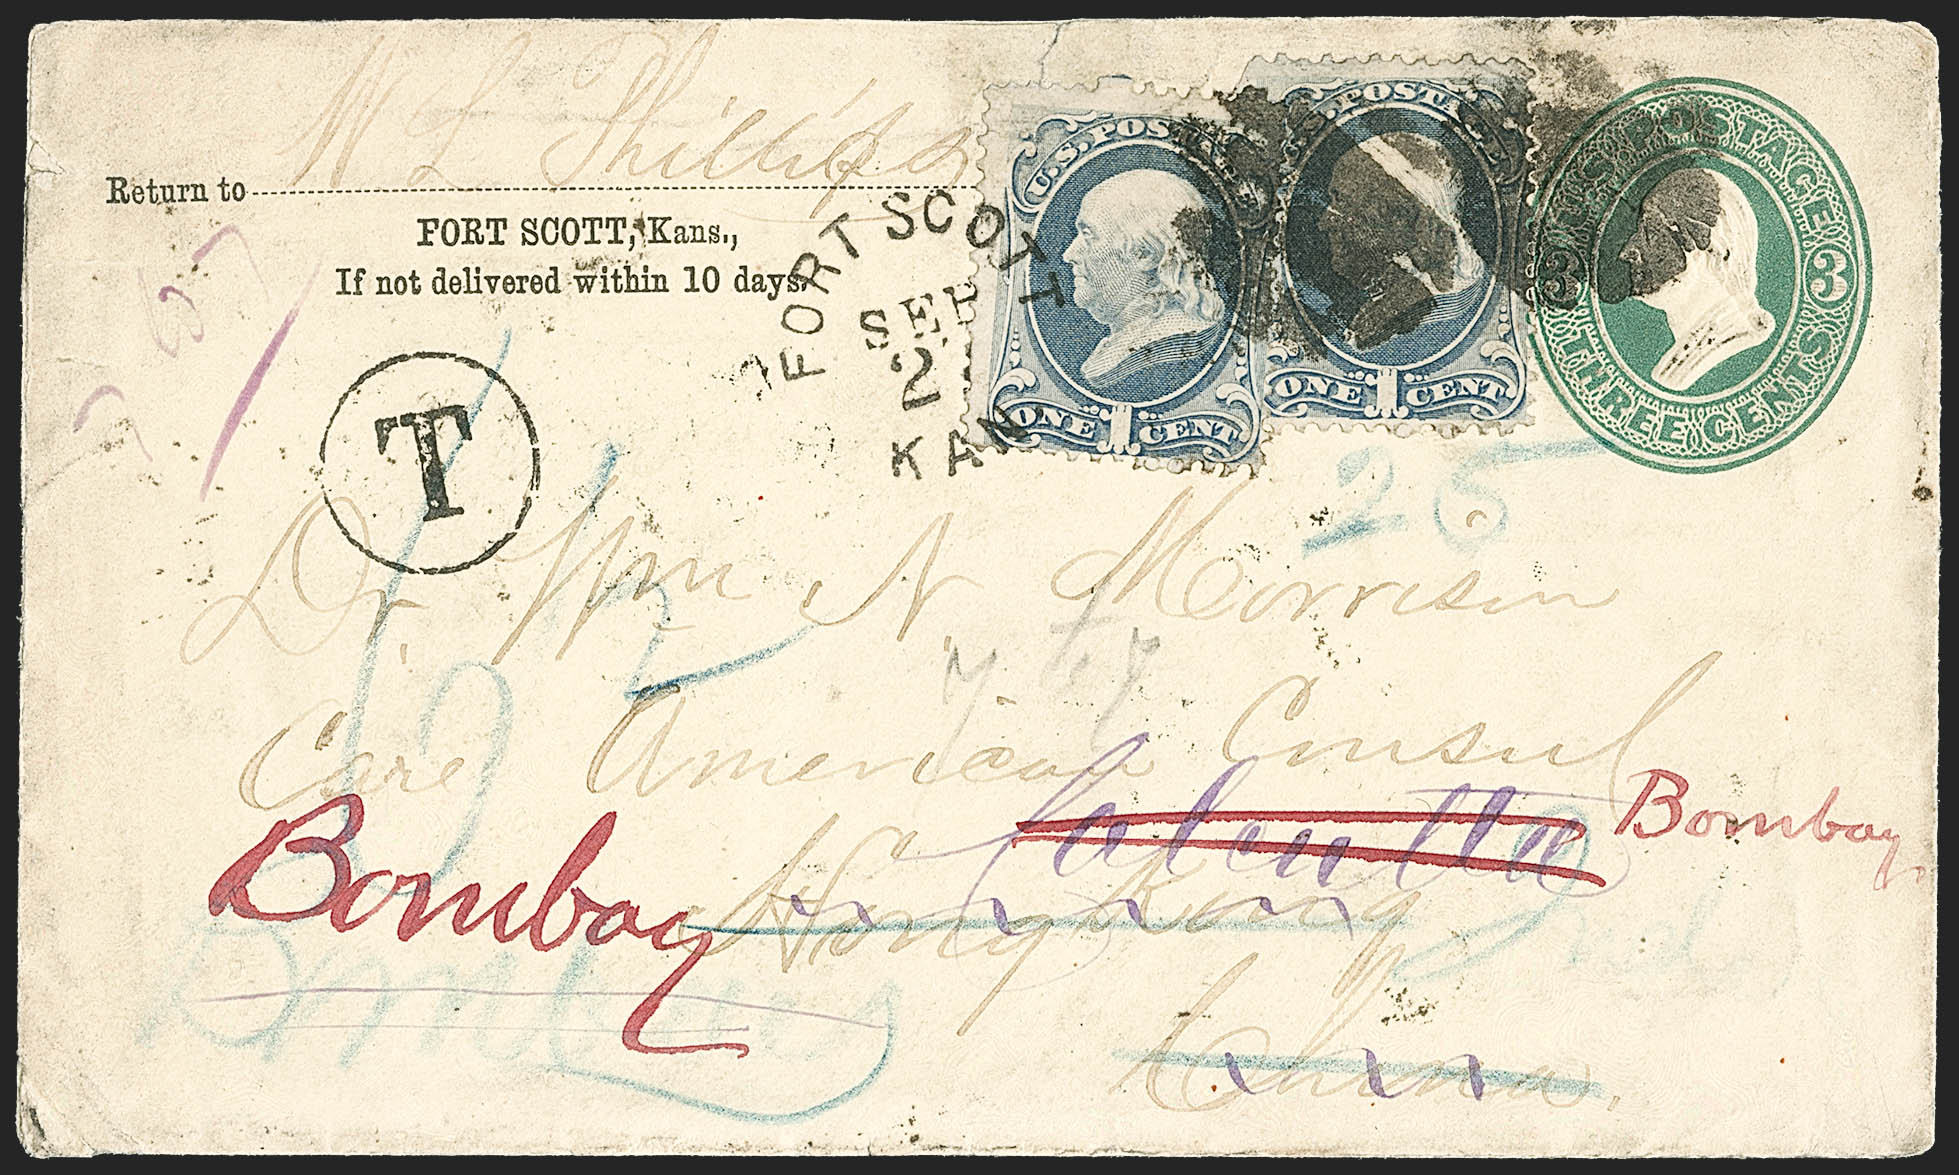 W L Phillips
Return to
FORT SCOTT, Kans.,
If not delivered within 10 days.
FORT SCOTT
SEP
2
KAN
U.S. POSTAGE
ONE 1 CENT
U.S. POSTAGE
ONE 1 CENT
U.S. POSTAGE
3 3
THREE CENTS
T
25
Dr. Wm N. Morrison
Care American Consul
Calcutta Bombay
Hong Kong
Bombay
China.